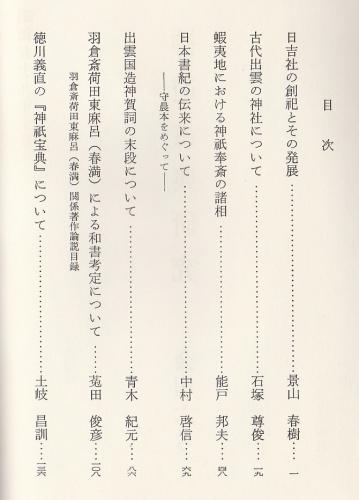 目次
日吉社の創祀とその発展……景山 春樹…一
古代出雲の神社について……石塚 尊俊…一九
蝦夷地における神祇奉斎の諸相……能戸 邦夫…四八
日本書紀の伝来について……中村 啓信…六九
――守晨本をめぐって――
出雲国造神賀詞の末段について……青木 紀元…八六
羽倉斎荷田東麻呂（春満）による和書考定について……菟田 俊彦…一〇八
羽倉斎荷田東麻呂（春満）関係著作論説目録
徳川義直の『神祇宝典』について……土岐 昌訓…一三六